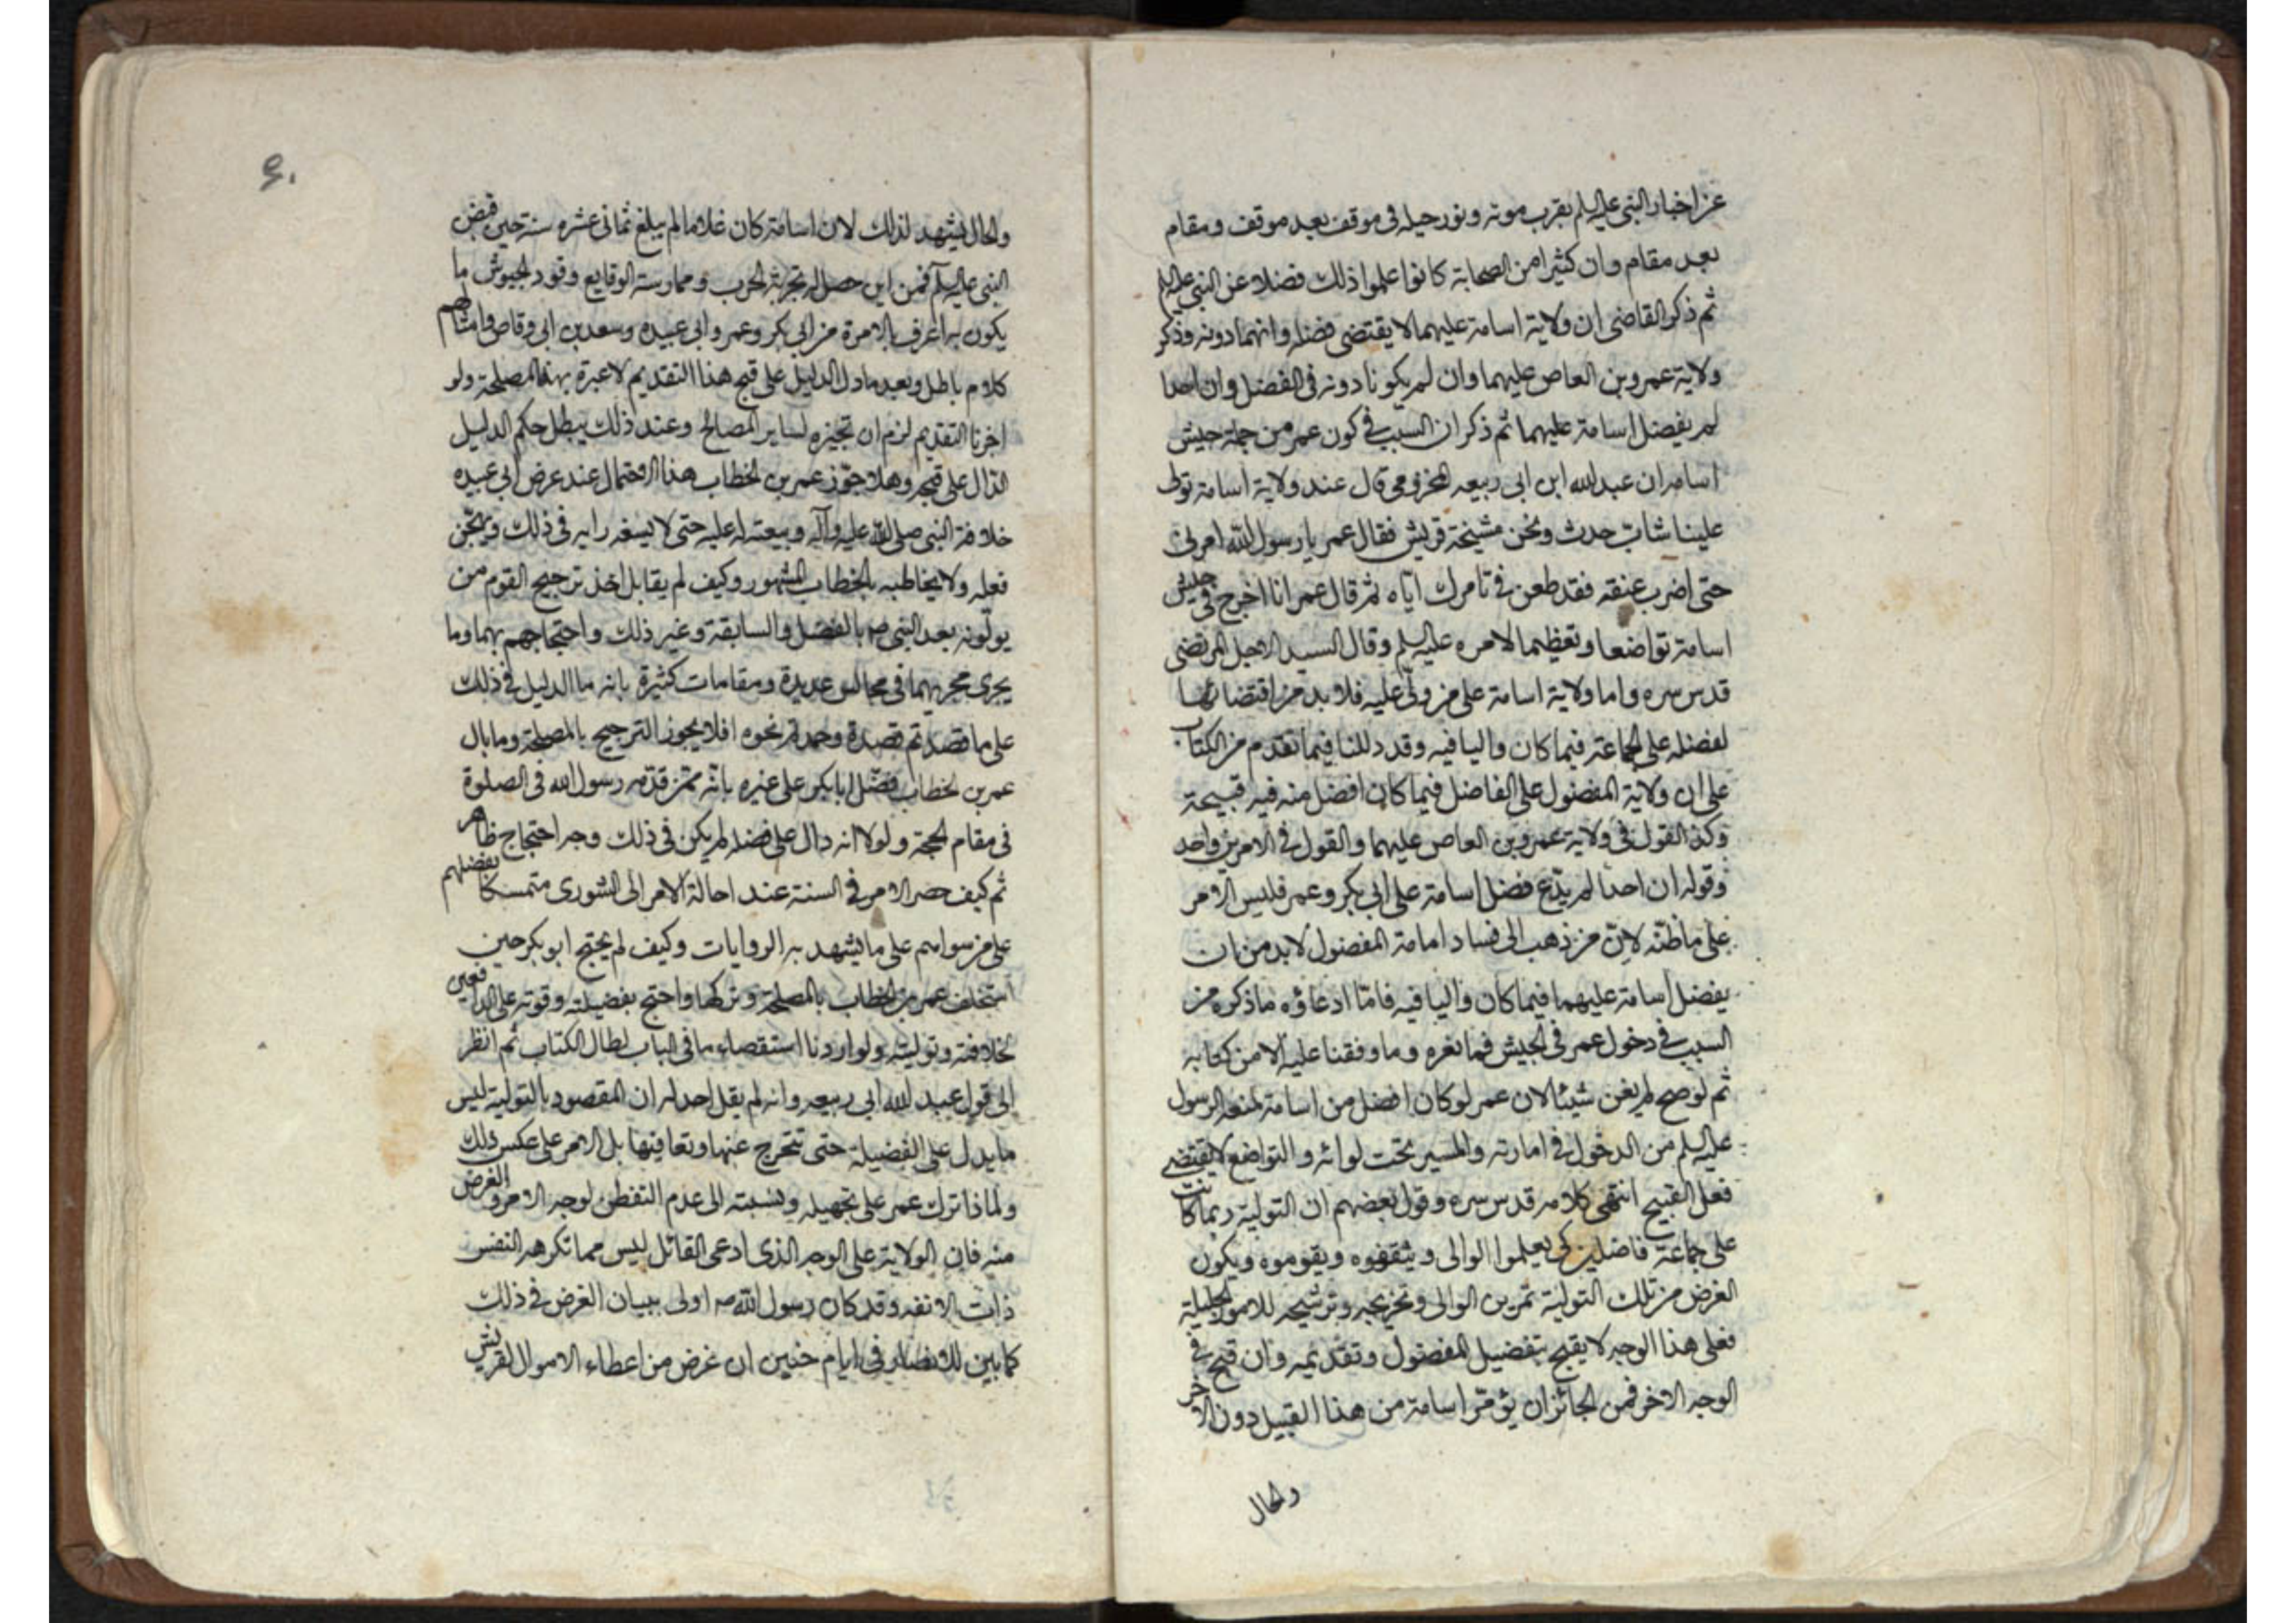 عن اخبار النبي عليه السلم بقرب موته ونور حيله في موقف بعد موقف ومقام
بعد مقام وان كثيرا من الصحابة كانوا علموا ذلك فضلا عن النبي عليه السلم
ثم ذكر القاضى ان ولاية اسامة عليهما لا يقتضى فضله وانهما دونه وذكر
ولاية عمرو بن العاص عليهما وان لم يكونا دونه في الفضل وان احدا
لم يفضل اسامة عليهما ثم ذكر ان السبب في كون عمر من جملة جيش
اسامه ان عبد الله ابن ابى ربيعه المخزومي قال عند ولاية اسامة تولى
علينا شاب حدث ونحن مشيخة قريش فقال عمر يا رسول الله امرنى
حتى اضرب عنقه فقد طعن في تامرك اياه ثم قال عمر انا اخرج في جيش
اسامة تواضعا وتعظيما لامره عليه السلم وقال السيد الاجل المرتضى
قدس سره واما ولاية اسامة على من ولى عليه فلا بد من اقتضائها
لفضله على الجماعة فيما كان واليا فيه وقد دللنا فيما تقدم من الكتاب
على ان ولاية المفضول على الفاضل فيما كان افضل منه فيه قبيحة
وكذا القول في ولاية عمرو بن العاص عليهما والقول في الامرين واحد
وقوله ان احدا لم يدع فضل اسامة على ابى بكر وعمر فليس الامر
على ما ظنه لان من ذهب الى فساد امامة المفضول لا بد من ان
يفضل اسامة عليهما فيما كان واليا فيه فاما ادعاؤه ما ذكره من
السبب في دخول عمر في الجيش فما نعرفه وما وقفنا عليه الا من كتابه
ثم لو صح لم يغن شيئا لان عمر لو كان افضل من اسامة لمنعه الرسول
عليه السلم من الدخول في امارته والمسير تحت لوائه والتواضع لا يقتضى
فعل القبيح انتهى كلامه قدس سره وقول بعضهم ان التولية ربما كانت
على جماعة فاضلين كى يعلموا الوالى ويثقفوه ويقوموه ويكون
الغرض من تلك التولية تمرين الوالى وتخريجه وترشيحه للامور الجليلة
فعلى هذا الوجه لا يقبح تفضيل المفضول وتقديمه وان قبح في
الوجه الاخر فمن الجائز ان يؤمر اسامة من هذا القبيل دون الاخر
والحال
۴۰
والحال يشهد لذلك لان اسامة كان غلاما لم يبلغ ثمانى عشره سنة حين قبض
النبي عليه السلم فمن اين حصل له تجربة الحرب وممارسة الوقايع وقود الجيوش ما
يكون به اعرف بالامرة من ابى بكر وعمر وابى عبيده وسعد بن ابى وقاص وامثالهم
كلام باطل وبعد ما دل الدليل على قبح هذا التقديم لا عبرة بهذه المصلحة ولو
اخرنا التقديم لزم ان تجيزه لساير المصالح وعند ذلك يبطل حكم الدليل
الدال على قبحه وهلا جوز عمر بن الخطاب هذا الاحتمال عند عرض ابى عبيده
خلافة النبي صلى الله عليه وآله وبيعته له عليه حتى لا يسفه رايه في ذلك ويهجن
فعله ولا يخاطبه بالخطاب المشهور وكيف لم يقابل اخذ ترجيح القوم من
يولونه بعد النبي ص بالفضل والسابقة وغير ذلك واحتجاجهم بهما وما
يجرى مجريهما في مجالس عديدة ومقامات كثيرة بانه ما الدليل في ذلك
على ما قصدتم قصدة وحمدتم نحوه افلا يجوز الترجيح بالمصلحة وما بال
عمر بن الخطاب فضل ابا بكر على غيره بانه ممن قدمه رسول الله في الصلوة
في مقام الحجة ولولا انه دال على فضله لم يكن في ذلك وجه احتجاج ظاهر
ثم كيف حصر الامر في الستة عند احالة الامر الى الشورى متمسكا بفضلهم
على من سواهم على ما يشهد به الروايات وكيف لم يحتج ابو بكر حين
استخلف عمر بن الخطاب بالمصلحة وتركها واحتج بفضيلته وقوته على الدافعين
لخلافته وتوليته ولو اردنا استقصاء ما في الباب لطال الكتاب ثم انظر
الى قول عبد الله ابى ربيعه وانه لم يقل احد له ان المقصود بالتولية ليس
ما يدل على الفضيلة حتى تتحرج عنها وتعافيها بل الامر على عكس ذلك
ولماذا ترك عمر على تجهيله ونسبته الى عدم التفطن لوجه الامر والغرض
منه فان الولاية على الوجه الذى ادعى القائل ليس مما تكرهه النفس
ذات الانفه وقد كان رسول الله ص اولى ببيان الغرض في ذلك
كما بين للانصار في ايام حنين ان غرض من اعطاء الاموال لقريش